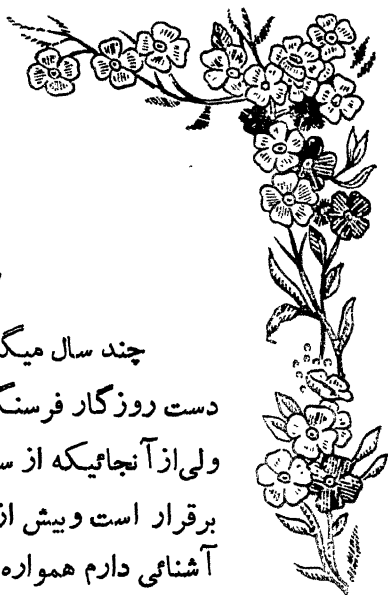 چند سال میگ
دست روزگار فرسنگ
ولی از آنجائیکه از س
برقرار است وبیش از
آشنائی دارم همواره